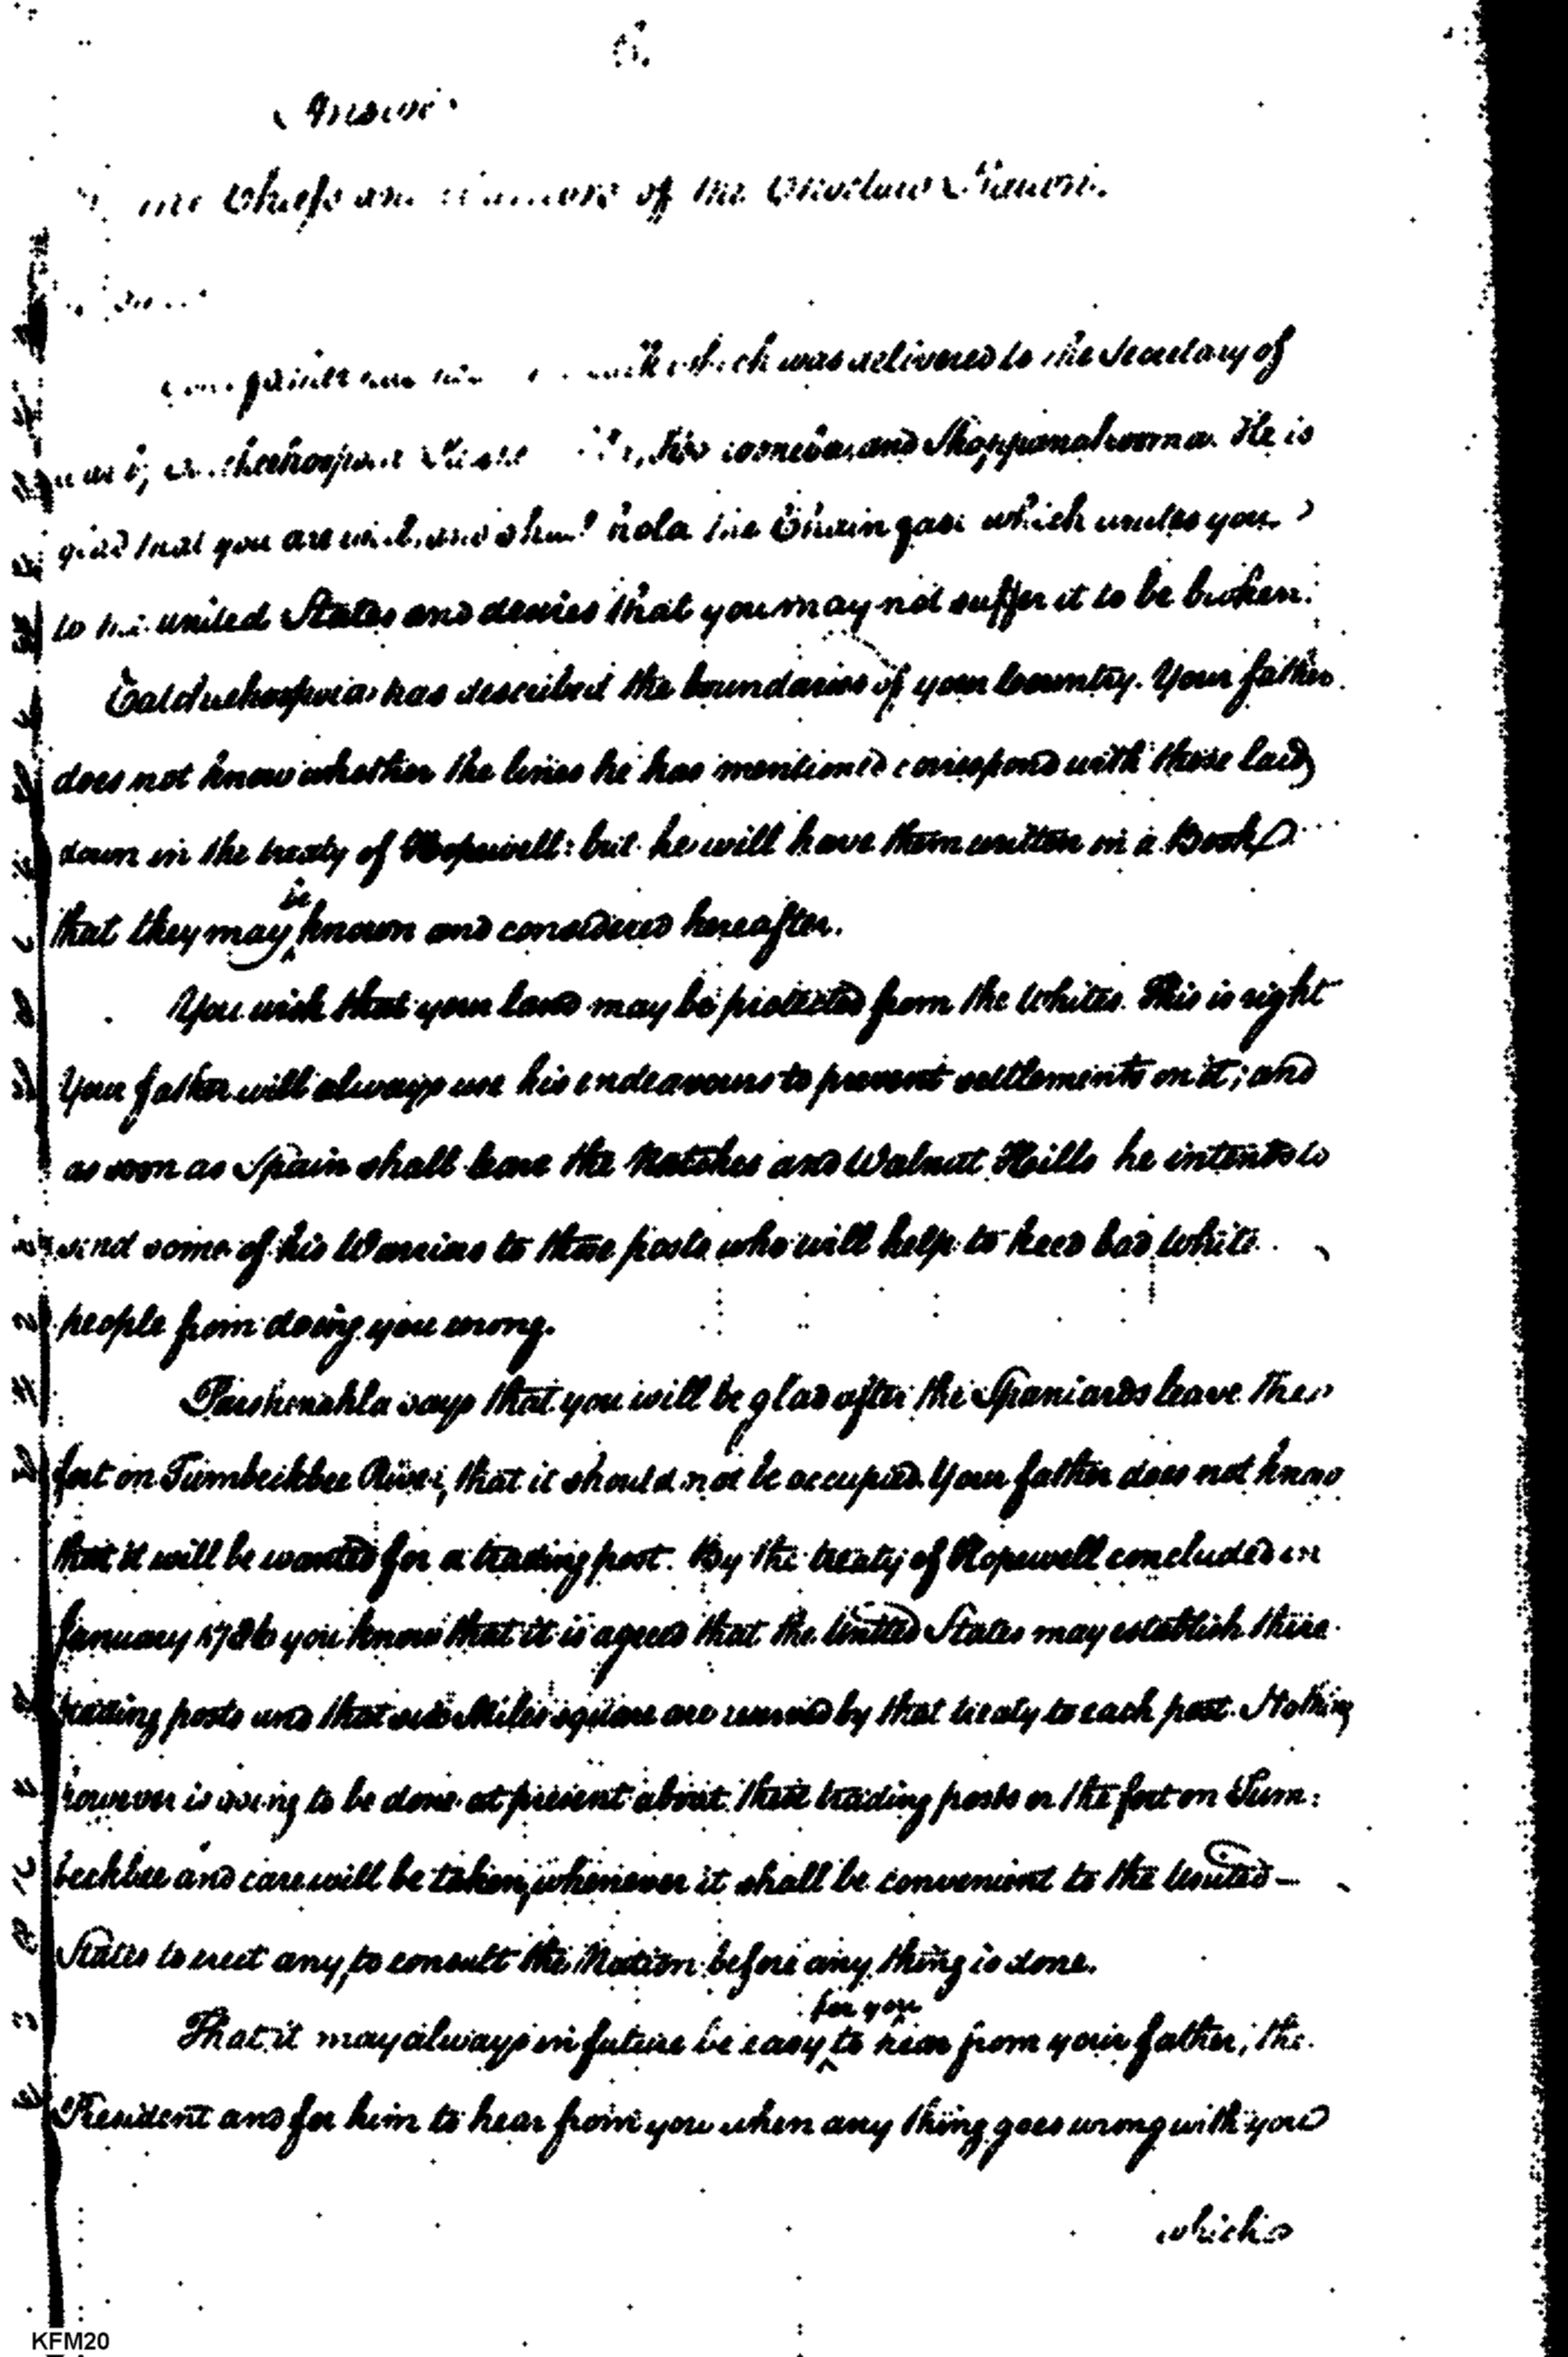 6.
Answer
the Chiefs and Warriors of the Choctaw Nation.
which was delivered to the Secretary of
war by and Shoppanahooma. He is
glad that you are and shall hold the Chain fast which unites you
to the united States and desires that you may not suffer it to be broken.
has described the boundaries of your Country. Your father
does not know whether the lines he has mentioned correspond with those laid
down in the treaty of Hopewell: but he will have them written in a Book
that they may be known and considered hereafter.
You wish that your land may be protected from the Whites. This is right
Your father will always use his endeavours to prevent settlements on it; and
as soon as Spain shall leave the Natches and Walnut Hills he intends to
send some of his Warriors to those posts who will help to keep bad White
people from doing you wrong.
says that you will be glad after the Spaniards leave their
fort on Tumbeckbee River, that it should not be occupied. Your father does not know
that it will be wanted for a trading post. By the treaty of Hopewell concluded in
January 1786 you know that it is agreed that the United States may establish three
trading posts and that six Miles square are reserved by that treaty to each post. Nothing
however is going to be done at present about these trading posts or the fort on Tum:
beckbee and care will be taken, whenever it shall be convenient to the United-
States to erect any, to consult the Nation before any thing is done.
That it may always in future be easy for you to hear from your father, the
President and for him to hear from you when any thing goes wrong with you
which
KFM20